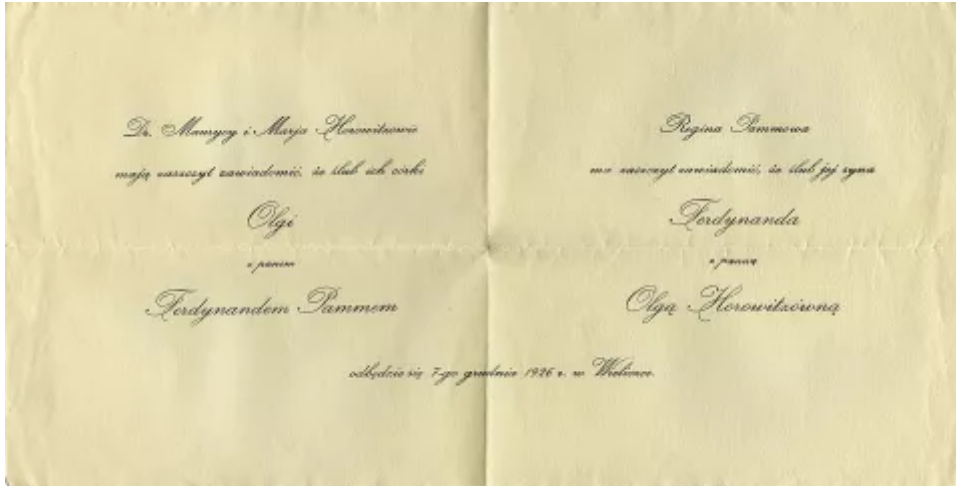 Dr. Maurycy i Marja Horowitzowie
mają zaszczyt zawiadomić, że ślub ich córki
Olgi
z panem
Ferdynandem Pammem
Regina Pammowa
ma zaszczyt zawiadomić, że ślub jej syna
Ferdynanda
z panną
Olgą Horowitzówną
odbędzie się 7-go grudnia 1926 r. w